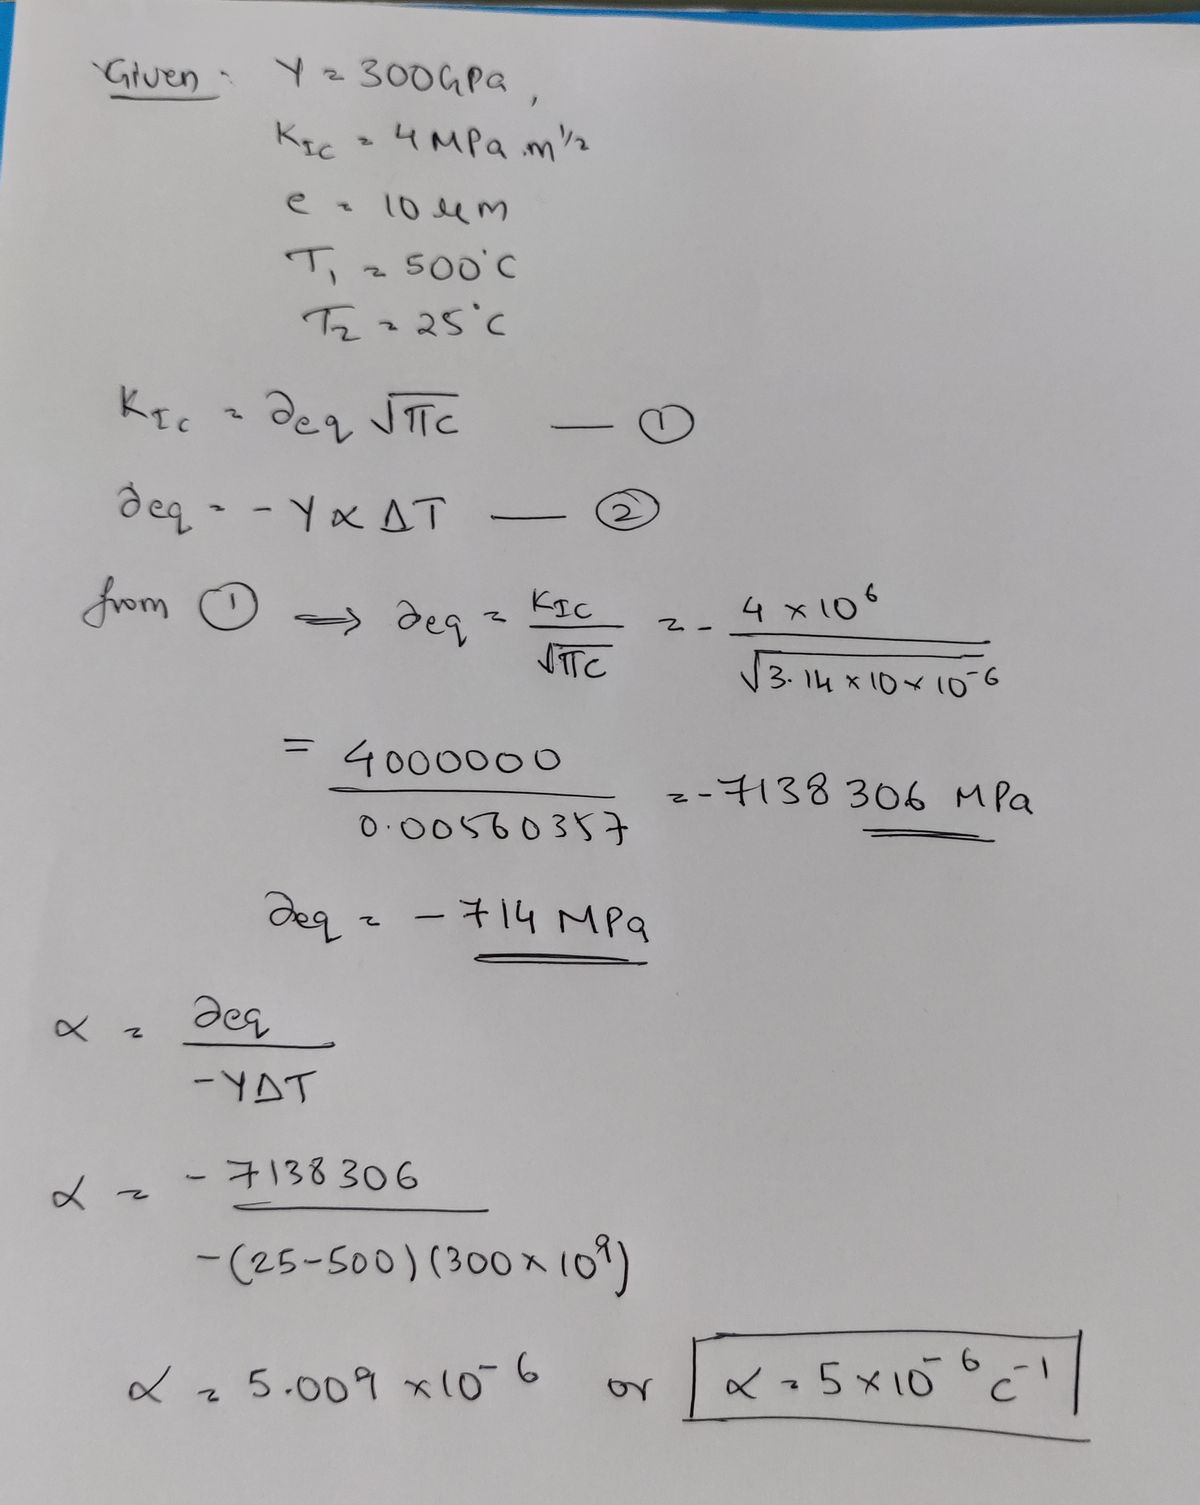 Given: Y = 300GPa,
K_IC = 4 MPa.m^1/2
c = 10 μm
T₁ = 500°C
T₂ = 25°C
K_Ic = ∂eq √πc — ①
∂eq = - Y ∝ ΔT — ②
from ① ⟹ ∂eq = K_IC / √πc = - 4 × 10^6 / √3.14 × 10 × 10^-6
= 4000000 / 0.00560357 = -7138 306 MPa
∂eq = - 714 MPa
∝ = ∂eq / -YΔT
∝ = - 7138 306 / -(25-500)(300×10^9)
∝ = 5.009 ×10^-6 or ∝ = 5×10^-6 c^-1